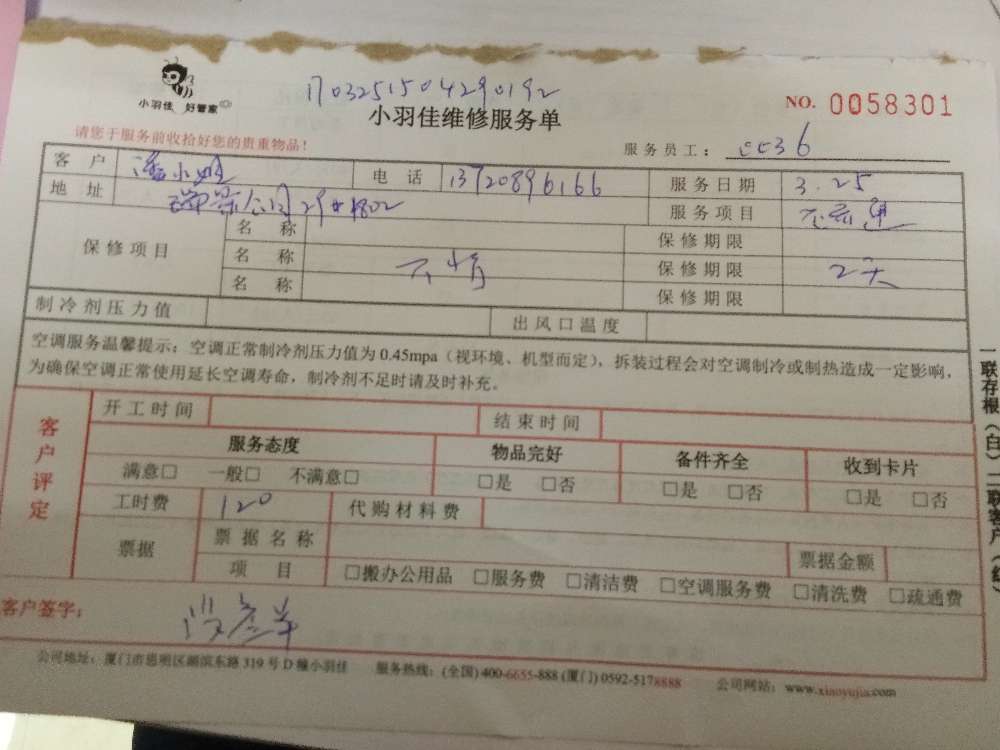 1703251504290192
小羽佳 好管家
小羽佳维修服务单
NO. 0058301
请您于服务前收拾好您的贵重物品!
服务员工:
客户 潘小姐 电话 13720896166 服务日期 3.25
地址 服务项目
保修项目 名称 保修期限
名称 保修期限 2天
名称 保修期限
制冷剂压力值 出风口温度
空调服务温馨提示:空调正常制冷剂压力值为0.45mpa(视环境、机型而定),拆装过程会对空调制冷或制热造成一定影响,
为确保空调正常使用延长空调寿命,制冷剂不足时请及时补充。
客户评定
开工时间 结束时间
服务态度 物品完好 备件齐全 收到卡片
满意□ 一般□ 不满意□ □是 □否 □是 □否 □是 □否
工时费 120 代购材料费
票据 票据名称 票据金额
项目 □搬办公用品 □服务费 □清洁费 □空调服务费 □清洗费 □疏通费
客户签字:
公司地址:厦门市思明区湖滨东路319号D幢小羽佳 服务热线:(全国)400-6655-888 (厦门)0592-5178888 公司网站:www.xiaoyujia.com
一联存根(白)二联客户(红)